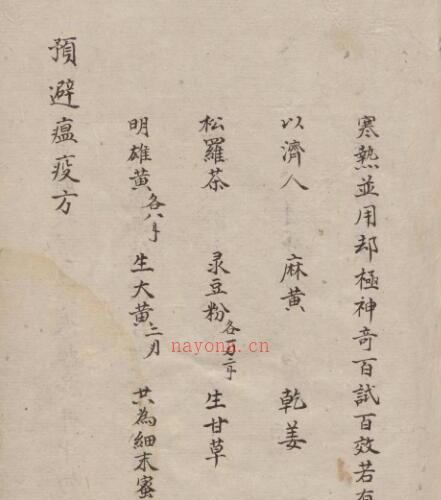 寒熱並用却極神奇百試百效若有
以濟人 麻黄 乾姜
松羅茶 录豆粉各 生甘草
明雄黄各八 生大黄二 共為細末蜜
預避瘟疫方
nayona.cn